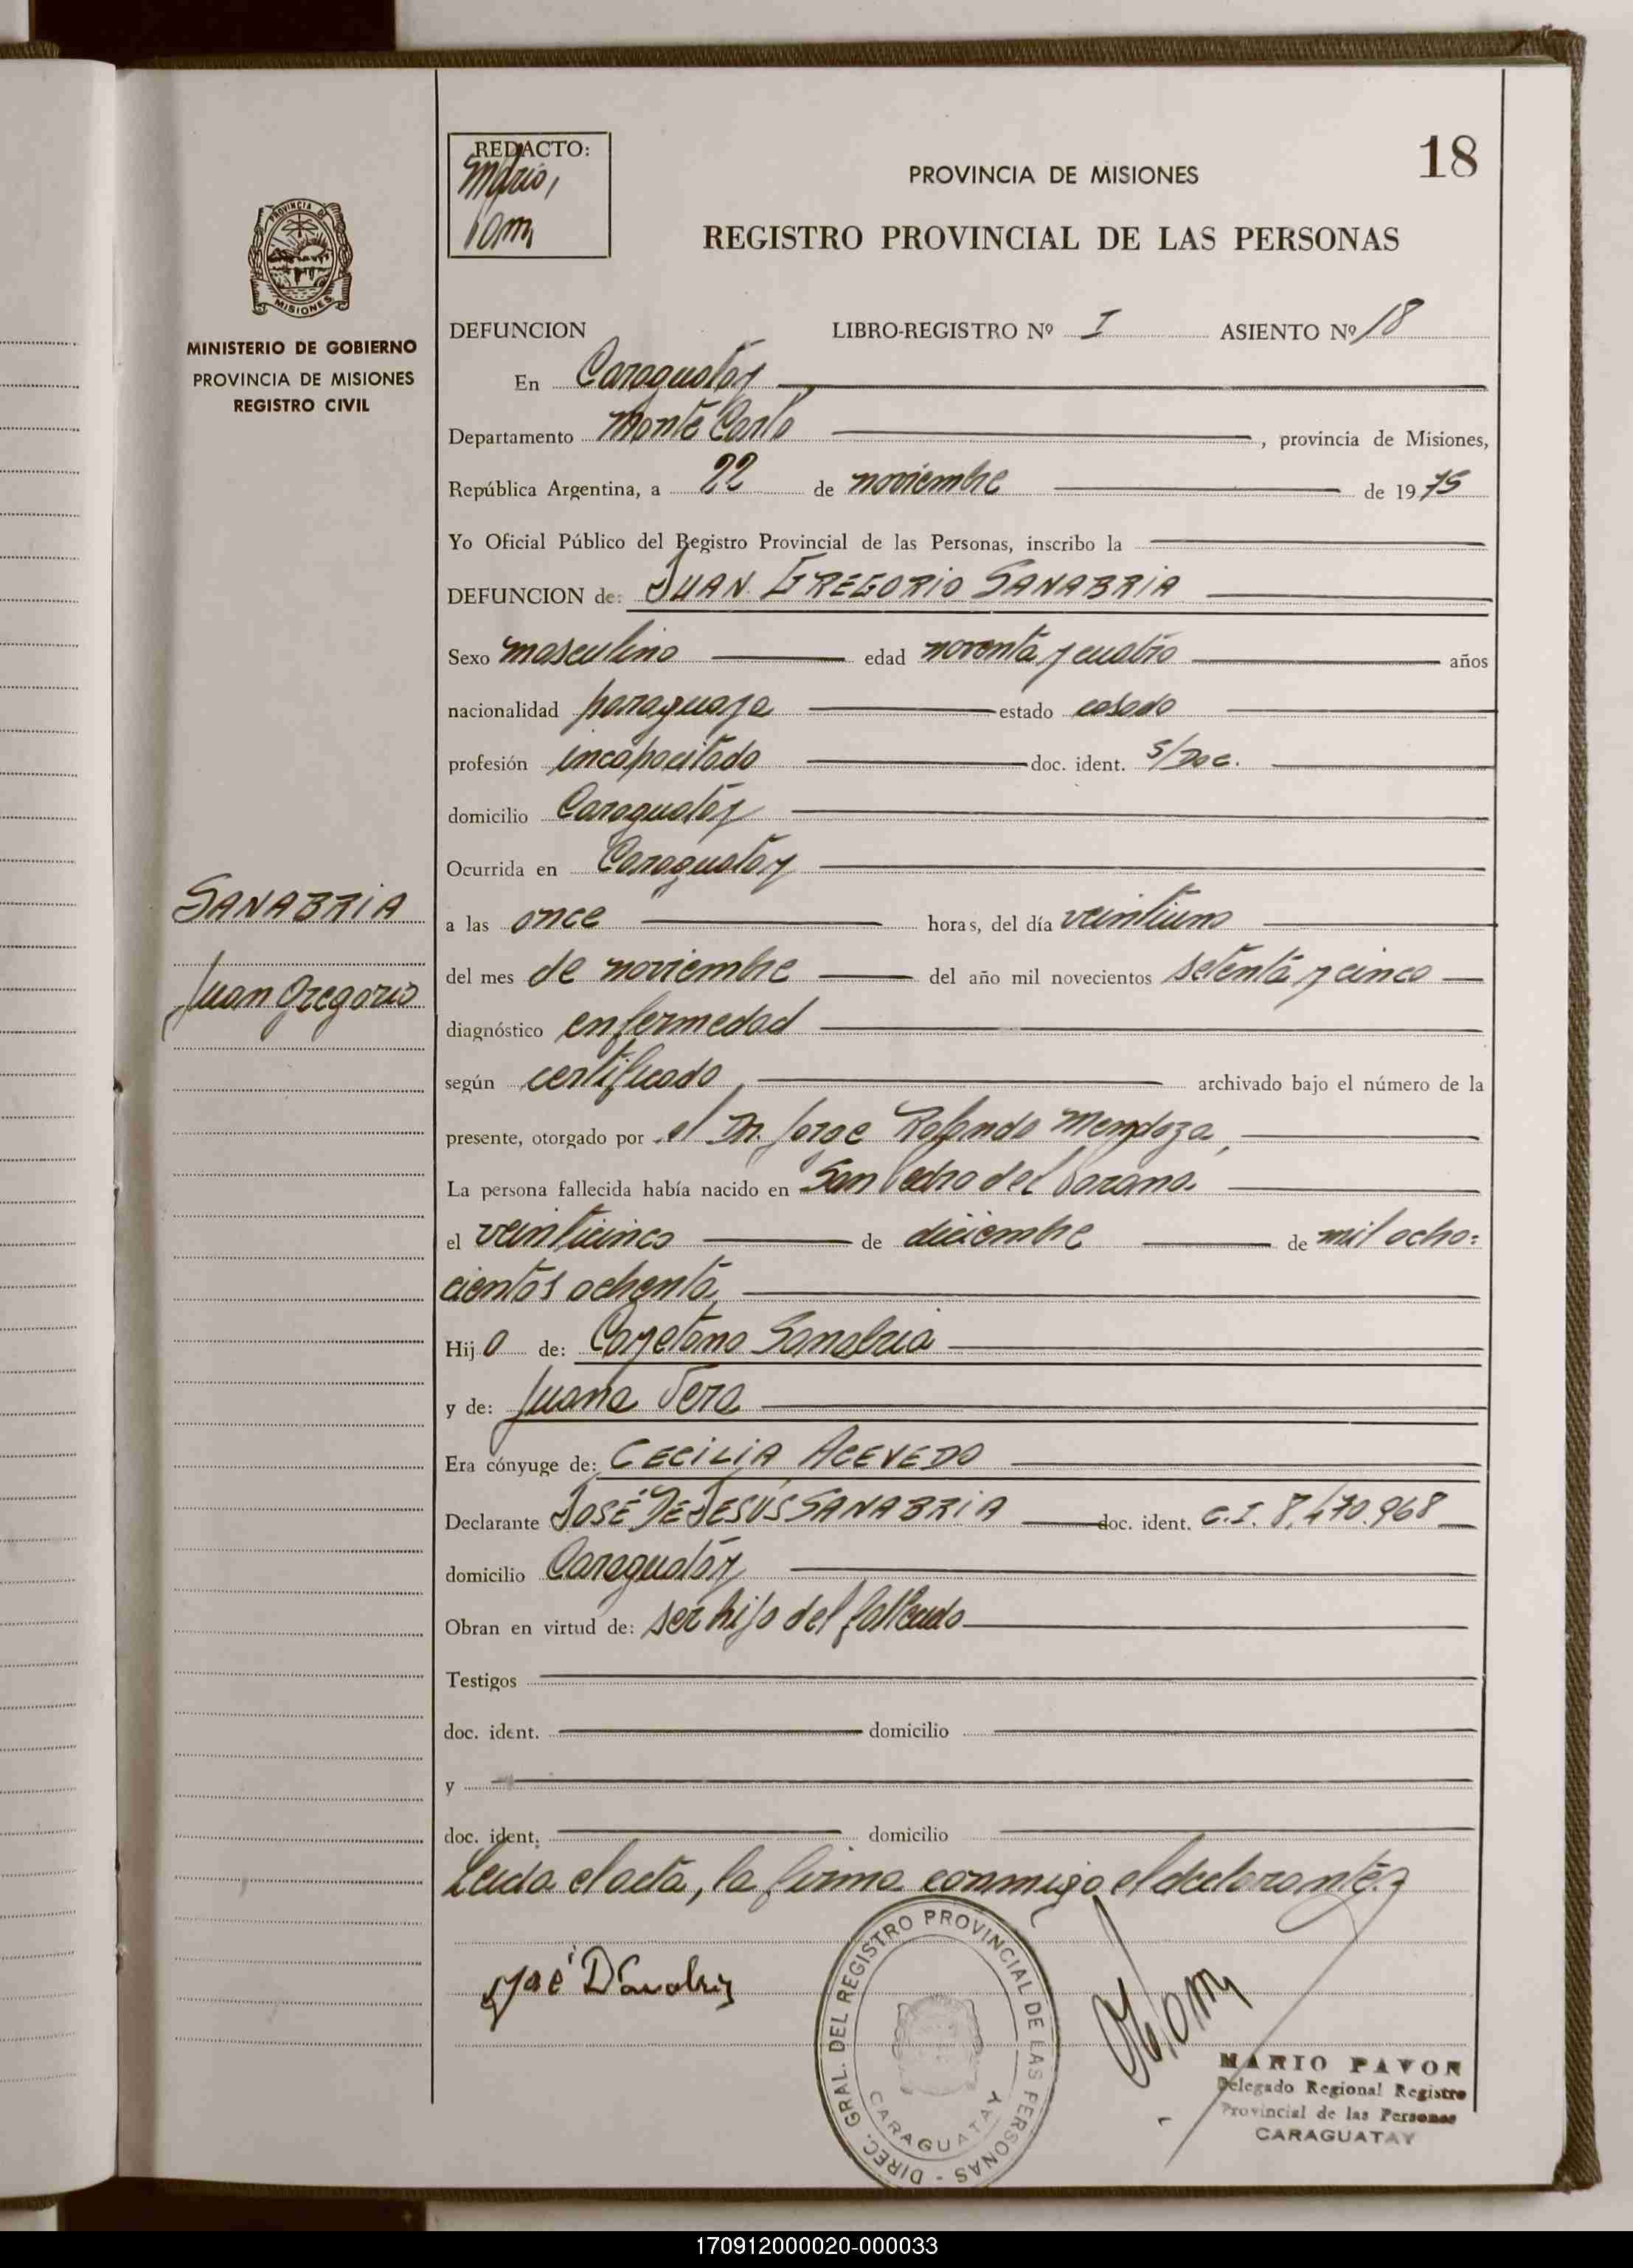 18
REDACTO:
Mario,
PROVINCIA DE MISIONES
REGISTRO PROVINCIAL DE LAS PERSONAS
PROVINCIA DE
MISIONES
MINISTERIO DE GOBIERNO
PROVINCIA DE MISIONES
REGISTRO CIVIL
DEFUNCION LIBRO-REGISTRO Nº I ASIENTO Nº 18
En Caraguatay
Departamento Monte Carlo, provincia de Misiones,
República Argentina, a 22 de noviembre de 1975
Yo Oficial Público del Registro Provincial de las Personas, inscribo la
DEFUNCION de: JUAN GREGORIO SANABRIA
Sexo masculino edad noventa y cuatro años
nacionalidad paraguaya estado casado
profesión incapacitado doc. ident. S/Doc.
domicilio Caraguatay
Ocurrida en Caraguatay
SANABRIA
Juan Gregorio
a las once horas, del día veintiuno
del mes de noviembre del año mil novecientos setenta y cinco
diagnóstico enfermedad
según certificado, archivado bajo el número de la
presente, otorgado por el Dr. Jorge Rolando Mendoza,
La persona fallecida había nacido en San Pedro del Parana.
el veinticinco de diciembre de mil ocho=
cientos ochenta,
Hijo de: Cayetano Sanabria
y de: Juana Vera
Era cónyuge de: CECILIA ACEVEDO
Declarante JOSÉ DE JESÚS SANABRIA doc. ident. C.I. 8.470.968
domicilio Caraguatay
Obran en virtud de: ser hijo del fallecido
Testigos
doc. ident. domicilio
y
doc. ident. domicilio
Leida el acta, la firma conmigo el declarante.
José D Sanabria
DIREC. GRAL. DEL REGISTRO PROVINCIAL DE LAS PERSONAS -
CARAGUATAY
MARIO PAVON
Delegado Regional Registro
Provincial de las Personas
CARAGUATAY
170912000020-000033